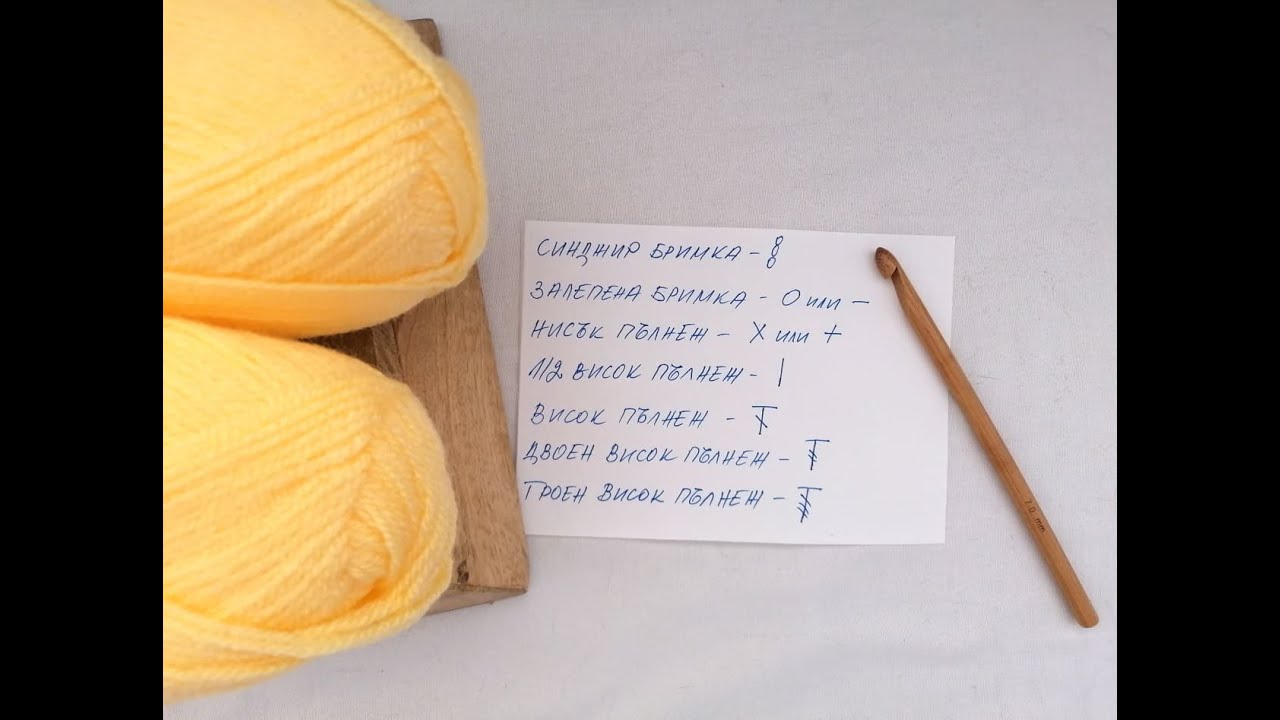 СИНДЖИР БРИМКА - 8
ЗАЛЕПЕНА БРИМКА - О или —
НИСЪК ПЪЛНЕЖ - X или +
1/2 ВИСОК ПЪЛНЕЖ - |
ВИСОК ПЪЛНЕЖ -
ДВОЕН ВИСОК ПЪЛНЕЖ -
ТРОЕН ВИСОК ПЪЛНЕЖ -
7.0 mm